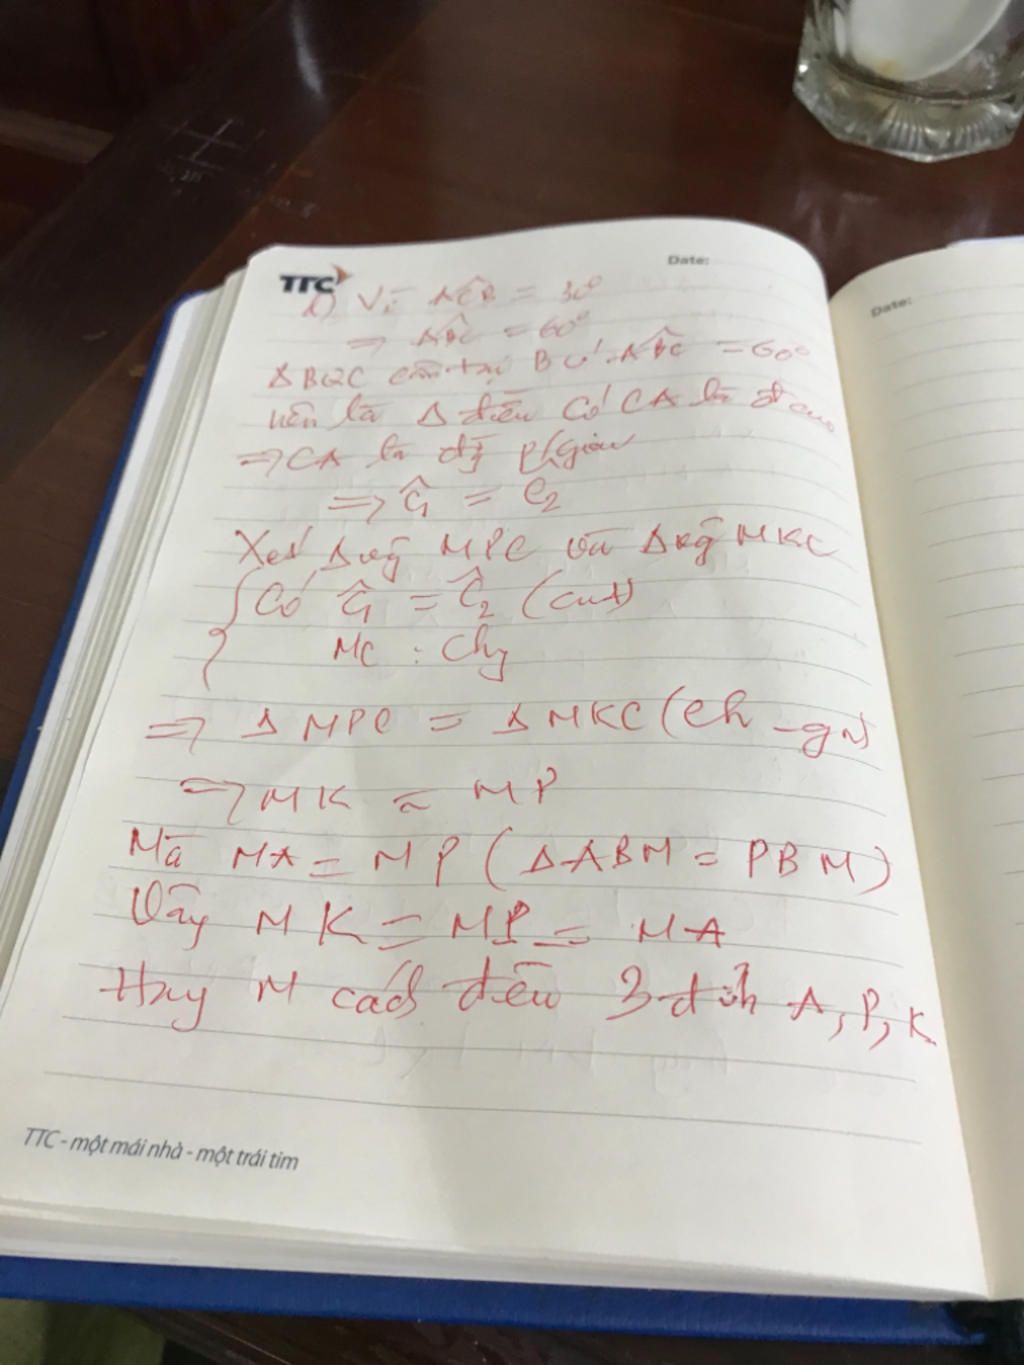 TTC
Date:
Date:
d) Vì ACB = 30°
=> ABC = 60°
Δ BQC cân tại B có ABC = 60°
nên là Δ đều Có CA là đ cao
=> CA là đg p/giác
=> Ĉ1 = C2
Xét Δ vg MPC và Δ vg MKC
Có Ĉ1 = Ĉ2 (cmt)
MC : Chg
=> Δ MPC = Δ MKC (Ch - gn)
=> MK = MP
Mà MA = MP (Δ ABM = PBM)
Vậy MK = MP = MA
Hay M cách đều 3 đỉnh A, P, K
TTC - một mái nhà - một trái tim